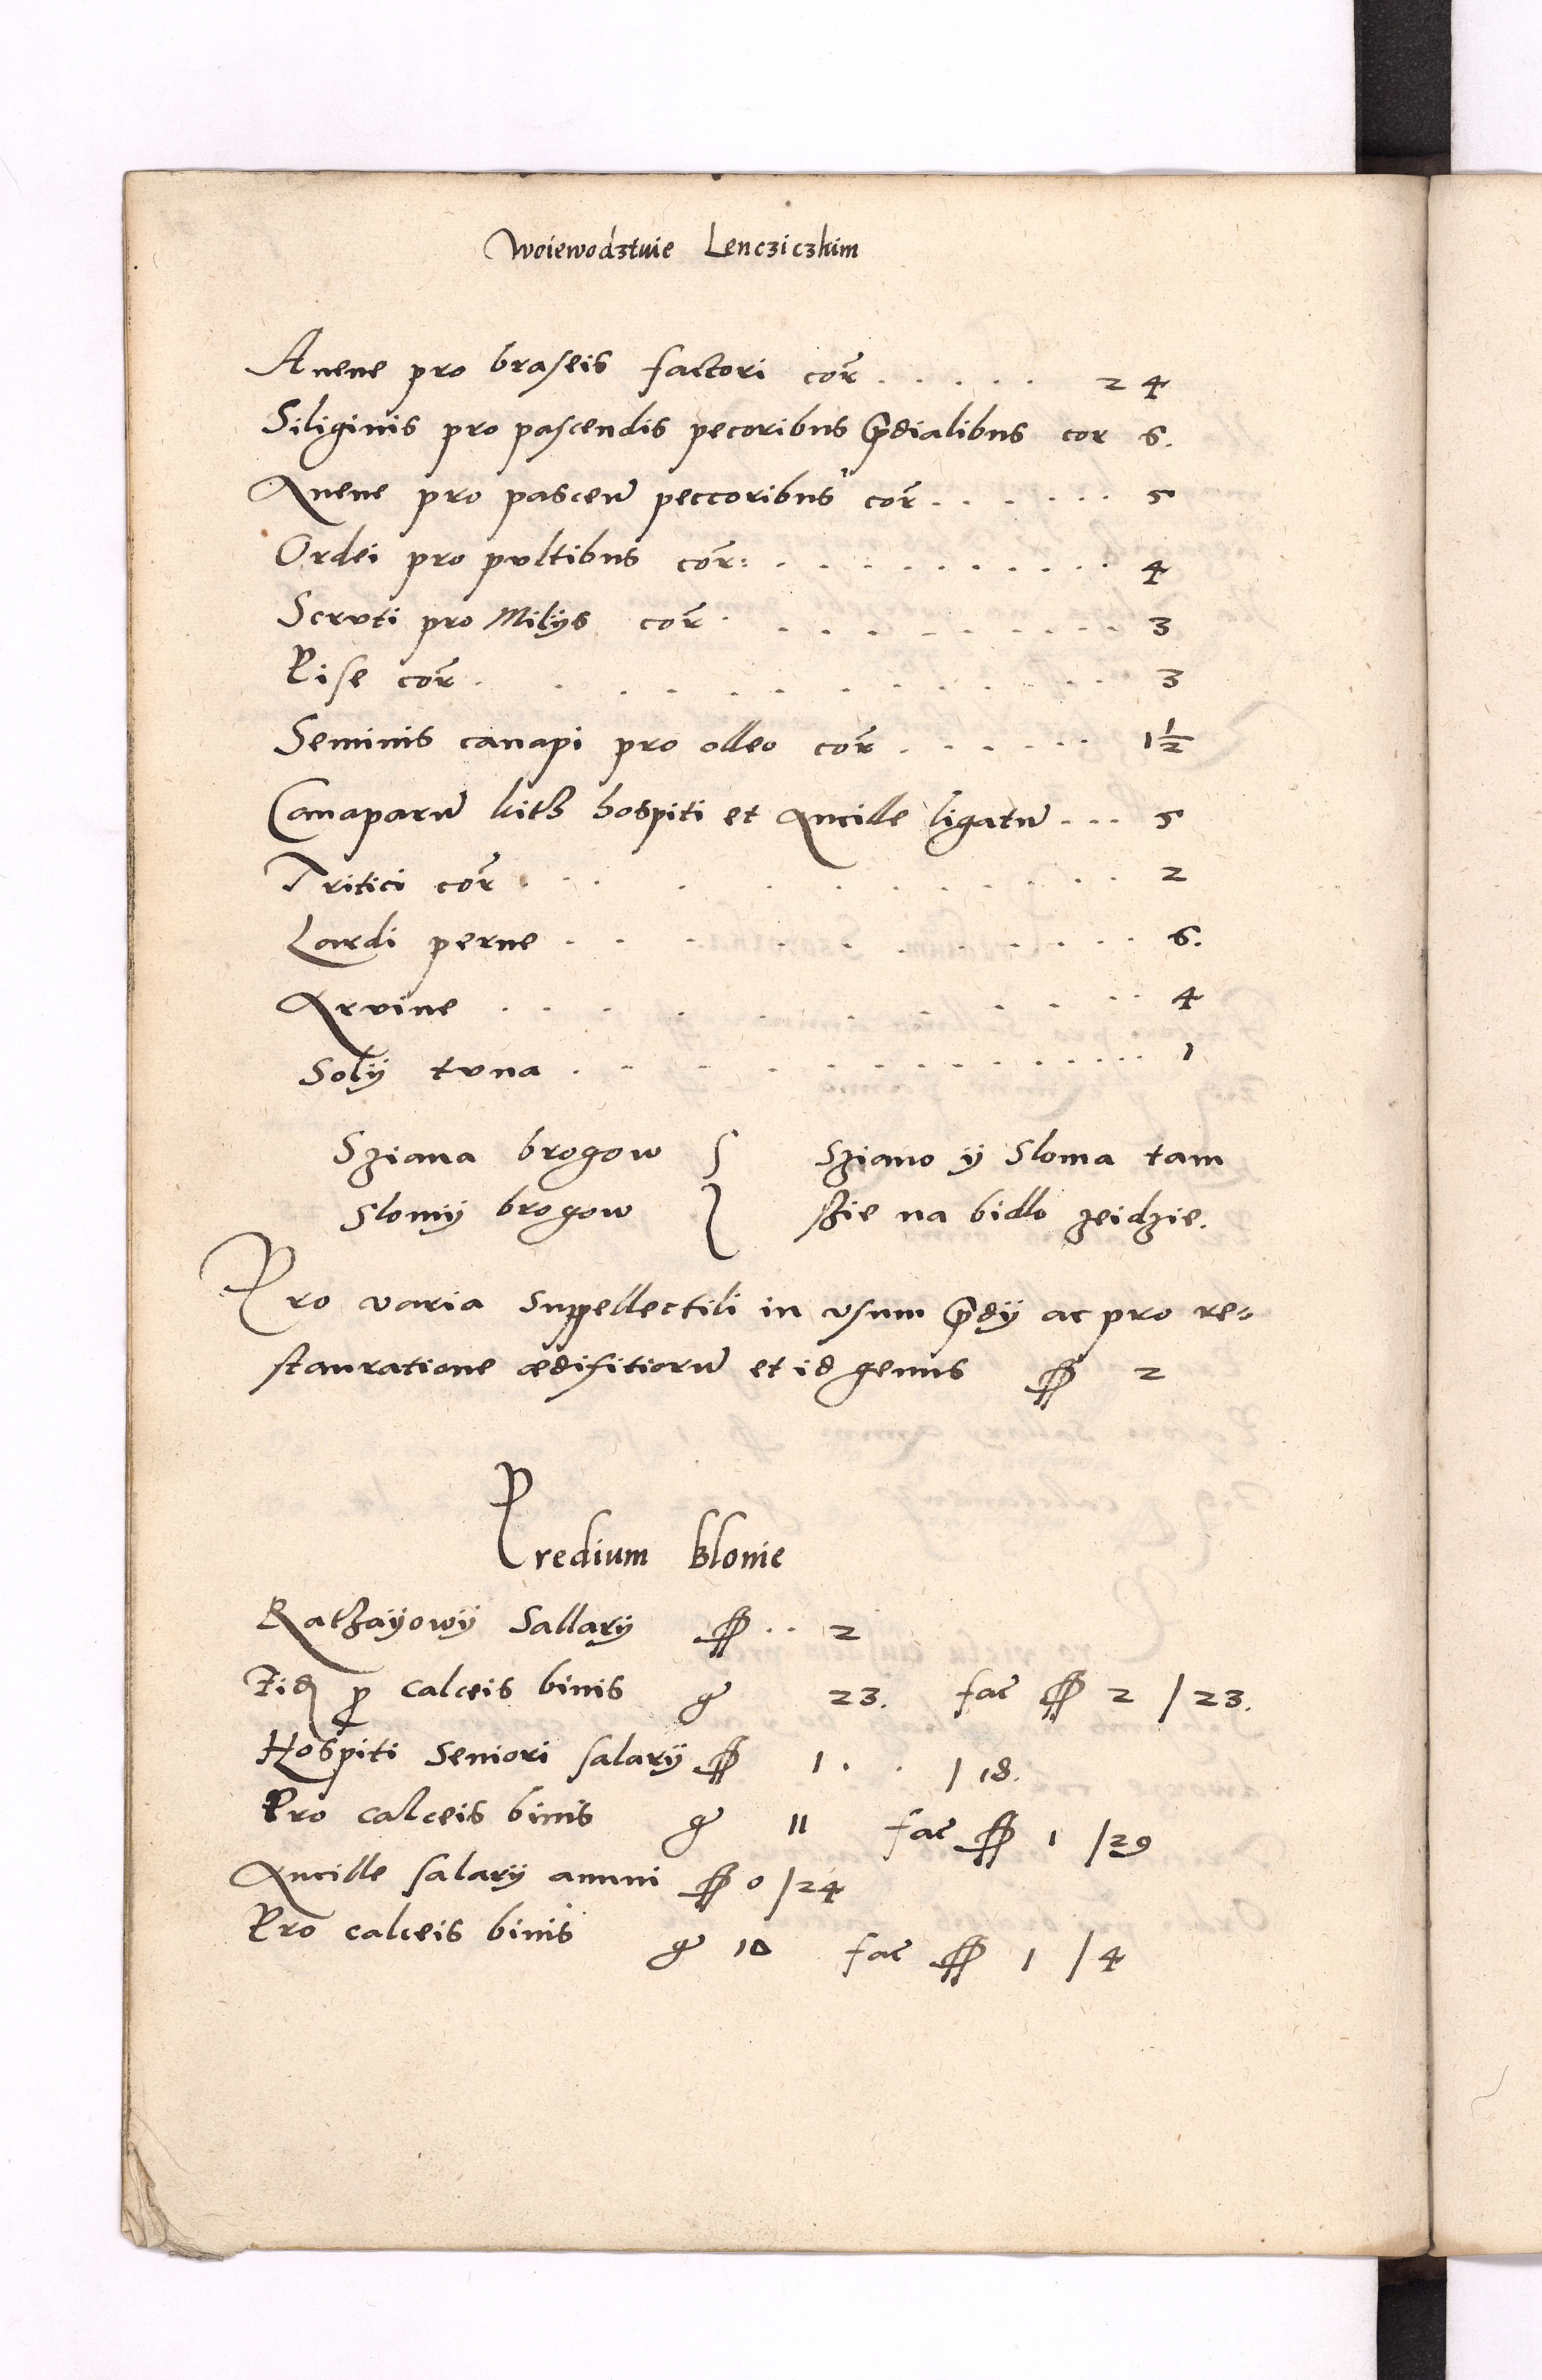 Woiewodztwie Lencziczkim
Auene pro braseis factori cor̃ . . . . . 24
Siliginis pro pascendis pecoribus p̃dialibus cor 6.
Auene pro pascen̄ peccoribus cor̃ . . . . . . 5
Ordei pro pultibus cor̃: . . . . . . . . . . 4
Scruti pro Milÿs cor̃ . . . . . . . . . 3
Pise cor̃ . . . . . . . . . . . 3
Seminis canapi pro olleo cor̃ . . . . . . 1½
Canaparū kitß hospiti et Ancille ligatū . . . 5
Tritici cor̃ . . . . . . . . . . . 2
Lardi perne . . . . . . . . . . 6.
Aruine . . . . . . . . . . 4
Solÿ tuna . . . . . . . . . . . . 1
Sziana brogow } Sziano ÿ Sloma tam
Slomÿ brogow } szie na bidlo zeidzie.
Pro varia Suppellectili in vsum p̃dÿ ac pro re=
stauratione ædifitiorū et id genus 2
Predium Blonie
Ratßaÿowÿ Sallarÿ . . 2
calceis binis g 23. fac̃ 2 / 23.
Hospiti Seniori salarÿ 1 . . / 18.
Pro calceis binis g 11 fac̃ 1 / 29
Ancille salarÿ annui 0 / 24
Pro calceis binis g 10 fac̃ 1 / 4